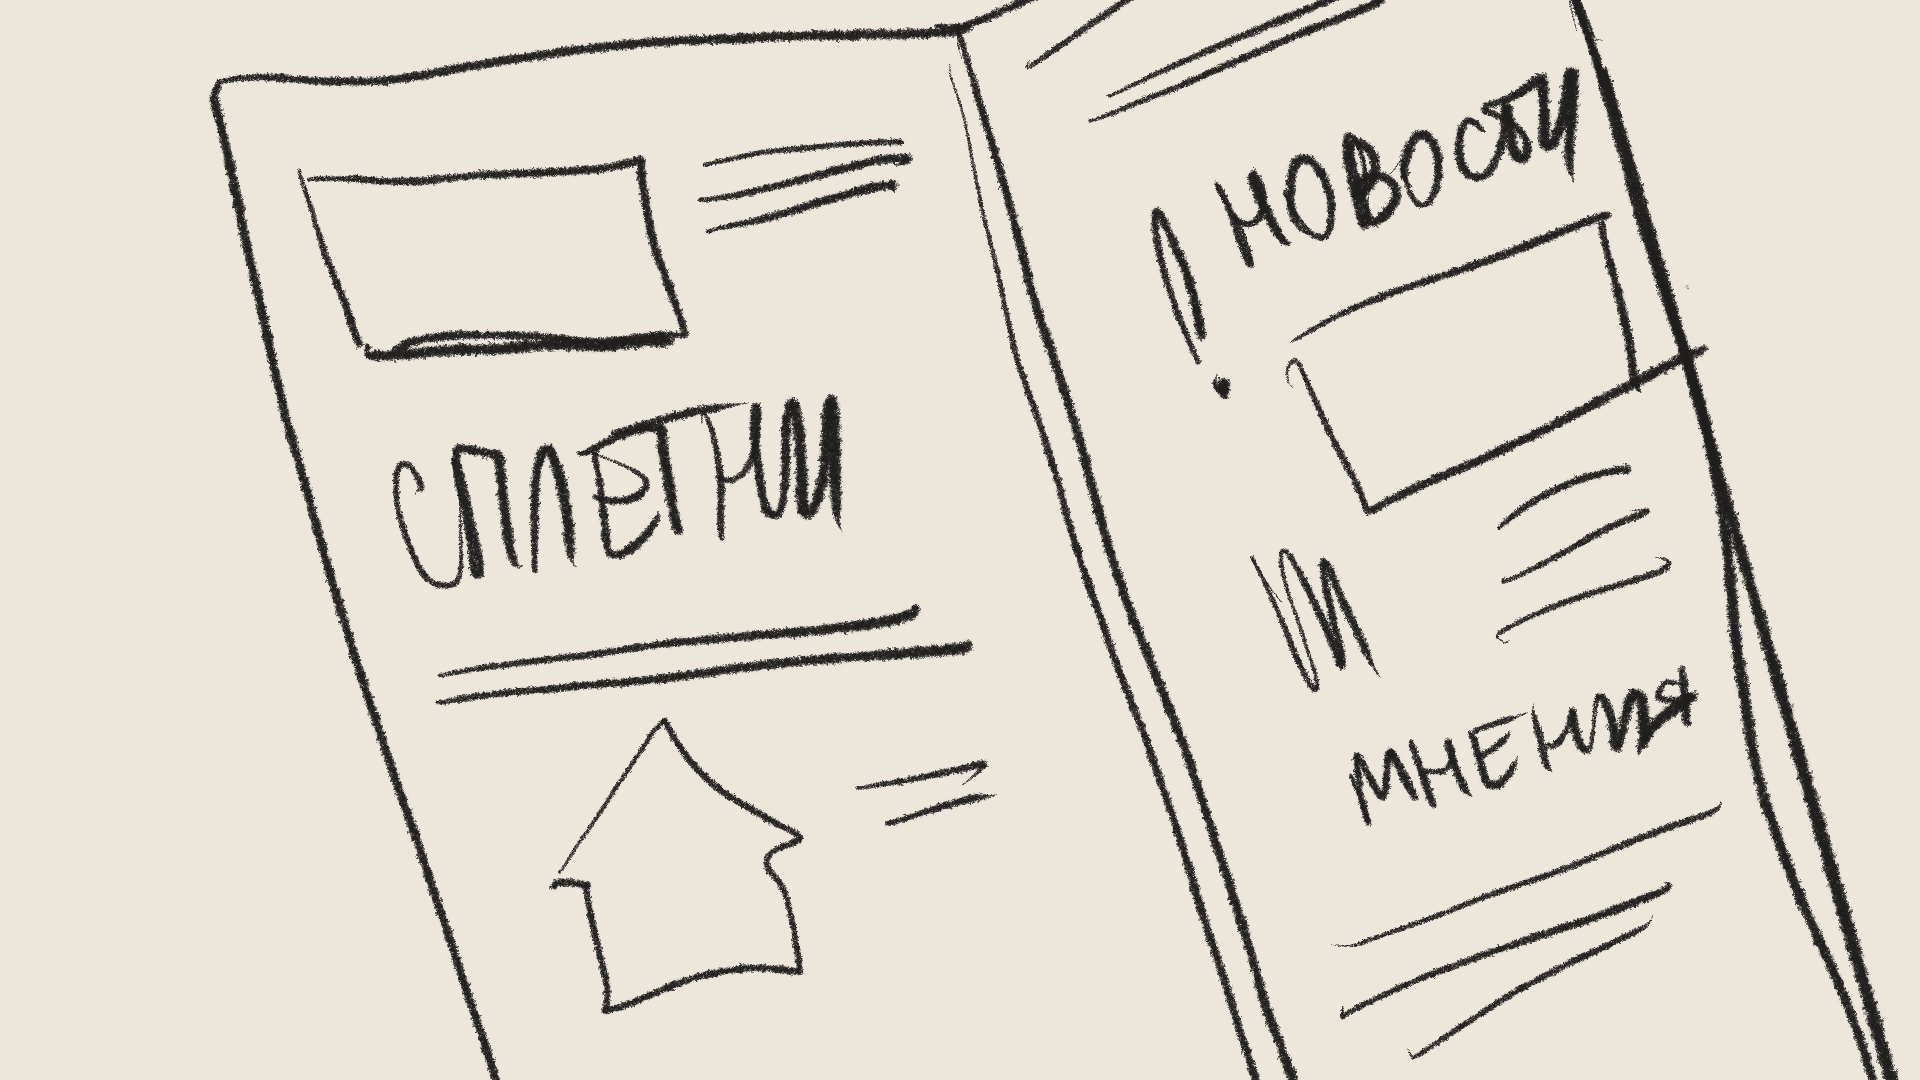 СПЛЕТНИ
! НОВОСТИ
МНЕНИЯ